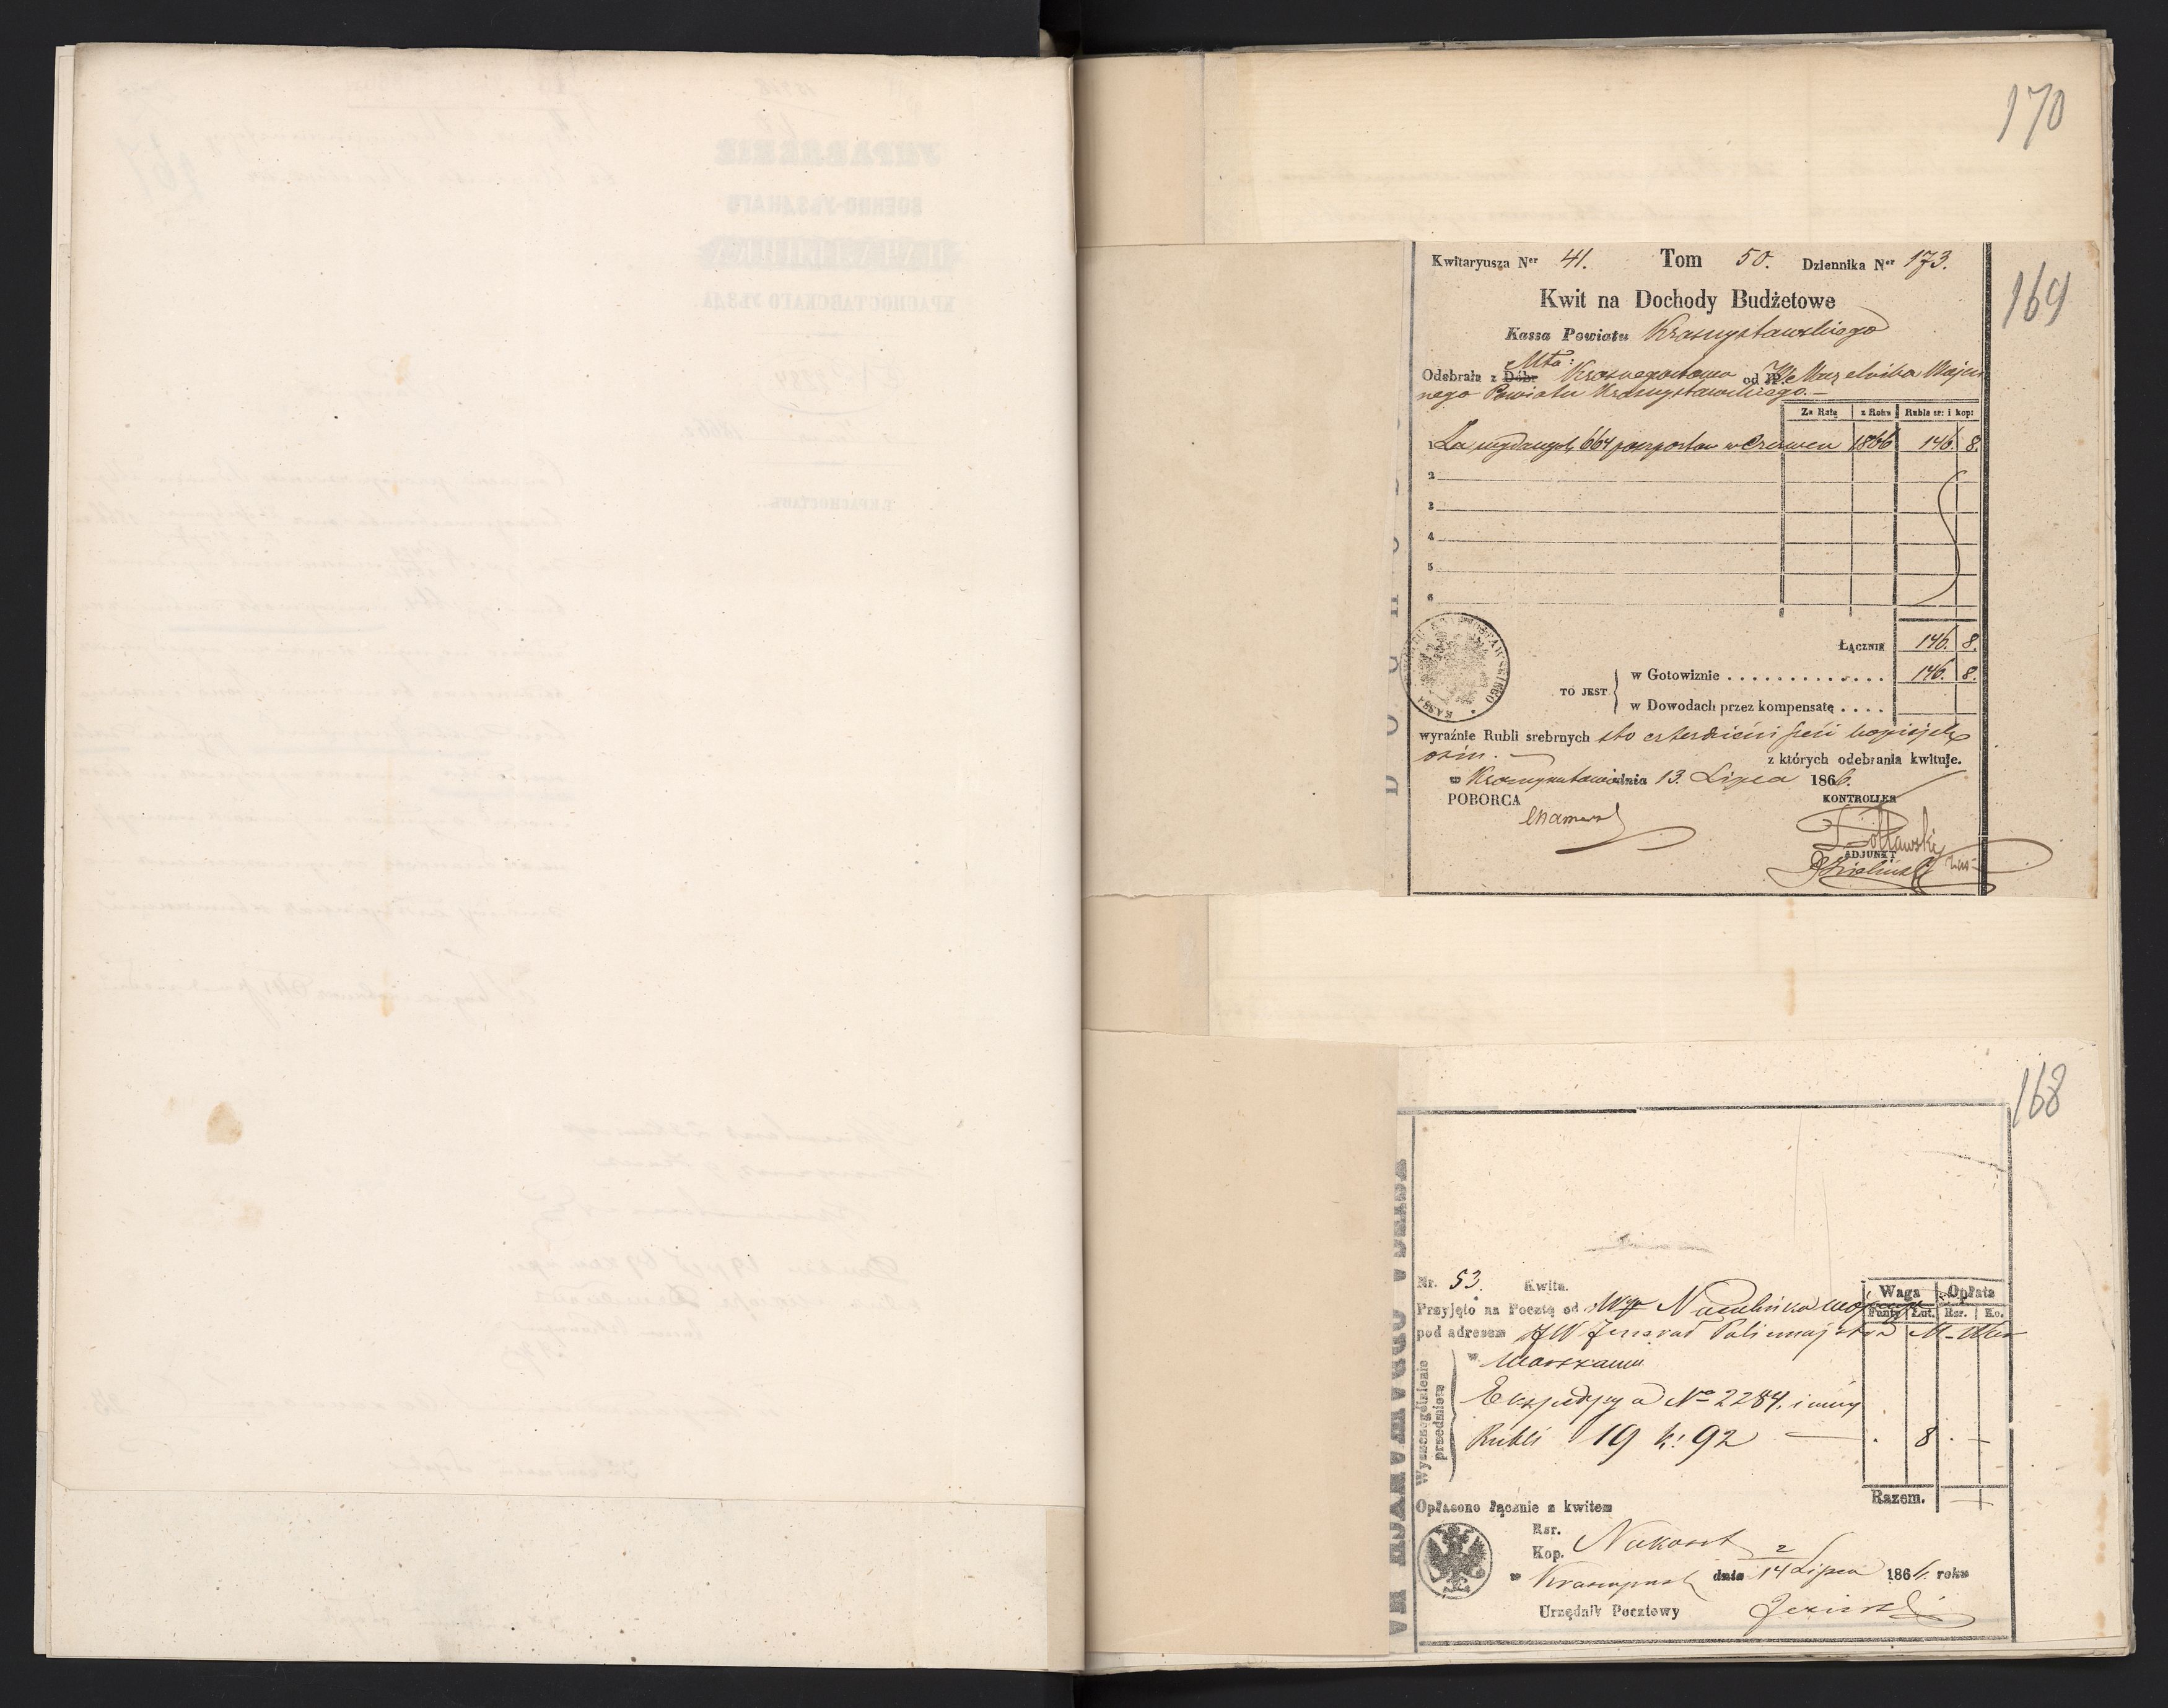 170
169
Kwitaryusza Ner 41. Tom 50. Dziennika Ner 173.
Kwit na Dochody Budżetowe
Kassa Powiatu Krasnystawskiego
Odebrała z Dóbr Mta: Krasnegostawu od W. Naczelnika Wojen
nego Powiatu Krasnystawskiego.—
Za Ratę z Roku Ruble sr: i kop:
1 Za wydanych 664 paszportów w Czerwcu 1866 146. 8.
2
3
4
5
6
ŁĄCZNIE 146. 8.
TO JEST w Gotowiznie . . . . . . . . . . . . . 146. 8.
w Dowodach przez kompensatę . . . .
wyraźnie Rubli srebrnych sto czterdzieści sześć kopiejek
ośm. — z których odebrania kwituje.
w Krasnymstawie dnia 13. Lipca 1866.
POBORCA KONTROLLER
ADJUNKT
168
Nr. 53. Kwitu.
Waga Opłata
Funty Łut. Rsr. Ko.
Przyjęto na Pocztę od Naczelnika
pod adresem JW Jenerał Policmajstra
w Warszawie
Wyszczególnienie przedmiotu
Ekspedycya No 2284.
Rubli 19 k: 92 — 8
Razem.
Opłacono łącznie z kwitem
Rsr.
Kop.
w Krasnymst dnia 2/14 Lipca 1866. roku
Urzędnik Pocztowy